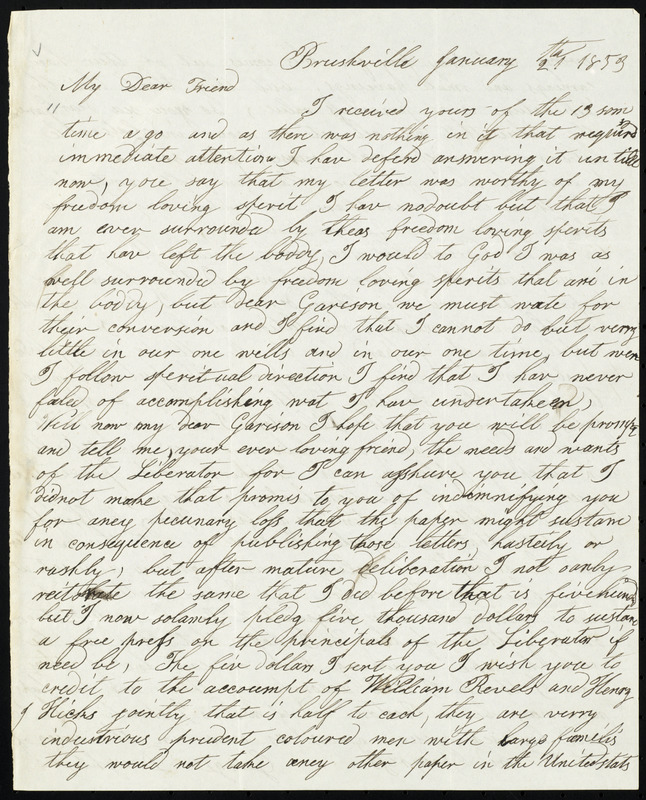 Brushville January 21th 1853
My Dear Friend
" I received yours of the 13 som
time a go and as there was nothing in it that requird
immediate attention I hav deferd answering it un till
now, you say that my letter was worthy of my
freedom loving sperit I hav nodoubt but that I
am ever surrounded by theas freedom loving sperits
that hav left the boddy, I would to God I was as
well surrounded by freedom loving sperits that are in
the boddy, but dear Garison we must wate for
their conversion and I find that I cannot do but verry
little in our one wills and in our one time, but wen
I follow speritual direction I find that I hav never
faled of accomplishing wat I hav undertakeen,
Will now my dear Garison I hope that you will be prompt
and tell me, your ever loving friend, the needs and wants
of the Liberator for I can asshure you that I
didnot make that promis to you of indemnifying you
for aney pecunary loss that the paper might sustane
in consequence of publishing those letters, hasteily or
rashly, but after mature deliberation I not oanly
reiterate the same that I did before that is five hund
but I now solamly pledg five thousand dollars to sustane
a free press on the principals of the Liberator if
need be, The fiv dollars I sent you I wish you to
credit to the accoumpt of William Revels and Henry
Hicks jointly that is half to each, they are verry
industrious prudent coloured men with large familis
they would not take aney other paper in the United stats